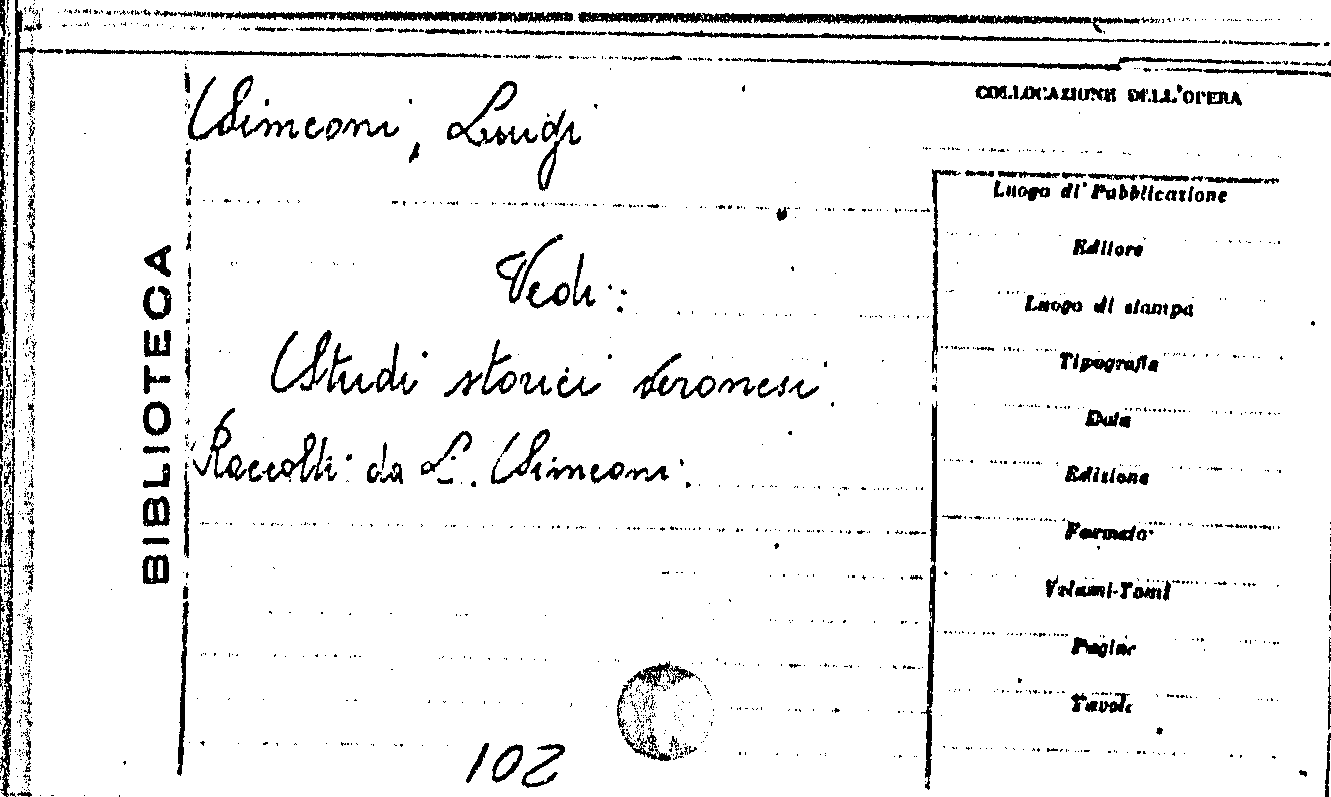 BIBLIOTECA
Simeoni, Luigi
Vedi:
Studi storici veronesi.
Raccolti da L. Simeoni.
102
COLLOCAZIONE DELL'OPERA
Luogo di Pubblicazione
Editore
Luogo di stampa
Tipografia
Data
Edizione
Formato
Volumi-Tomi
Pagine
Tavole